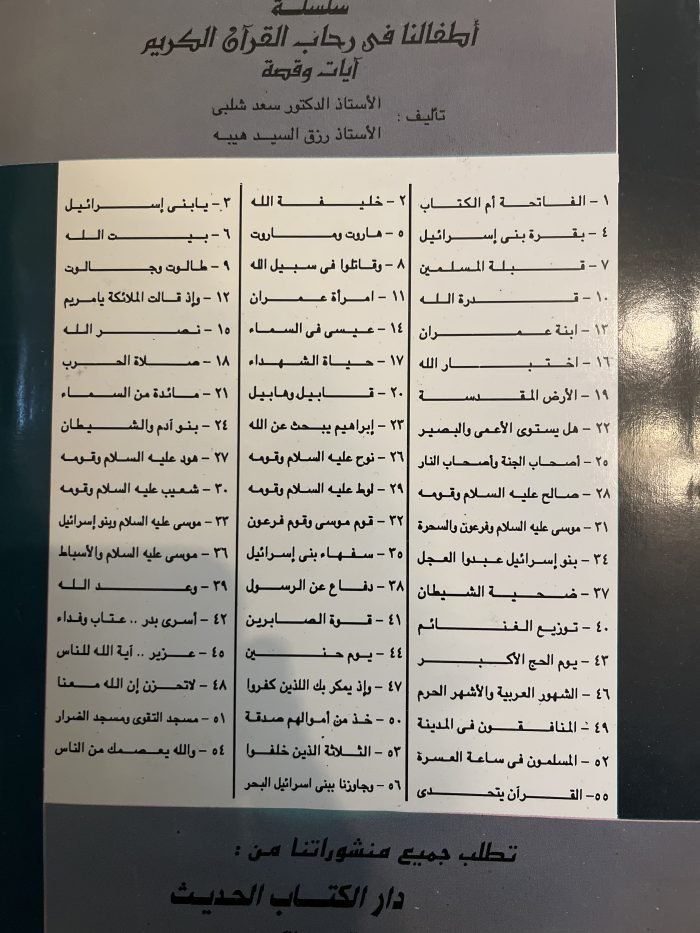 سلسلة
أطفالنا فى رحاب القرآن الكريم
آيات وقصة
تأليف :
الأستاذ الدكتور سعد شلبى
الأستاذ رزق السيد هيبه
١ - الفاتحة أم الكتاب
٢ - خليفة الله
٣ - يابنى إسرائيل
٤ - بقرة بنى إسرائيل
٥ - هاروت وماروت
٦ - بيت الله
٧ - قبلة المسلمين
٨ - وقاتلوا فى سبيل الله
٩ - طالوت وجالوت
١٠ - قدرة الله
١١ - امرأة عمران
١٢ - وإذ قالت الملائكة يامريم
١٣ - ابنة عمران
١٤ - عيسى فى السماء
١٥ - نصر الله
١٦ - اختبار الله
١٧ - حياة الشهداء
١٨ - صلاة الحرب
١٩ - الأرض المقدسة
٢٠ - قابيل وهابيل
٢١ - مائدة من السماء
٢٢ - هل يستوى الأعمى والبصير
٢٣ - إبراهيم يبحث عن الله
٢٤ - بنو آدم والشيطان
٢٥ - أصحاب الجنة وأصحاب النار
٢٦ - نوح عليه السلام وقومه
٢٧ - هود عليه السلام وقومه
٢٨ - صالح عليه السلام وقومه
٢٩ - لوط عليه السلام وقومه
٣٠ - شعيب عليه السلام وقومه
٣١ - موسى عليه السلام وفرعون والسحرة
٣٢ - قوم موسى وقوم فرعون
٣٣ - موسى عليه السلام وبنو إسرائيل
٣٤ - بنو إسرائيل عبدوا العجل
٣٥ - سفهاء بنى إسرائيل
٣٦ - موسى عليه السلام والأسباط
٣٧ - ضحية الشيطان
٣٨ - دفاع عن الرسول
٣٩ - وعد الله
٤٠ - توزيع الغنائم
٤١ - قوة الصابرين
٤٢ - أسرى بدر .. عتاب وفداء
٤٣ - يوم الحج الأكبر
٤٤ - يوم حنين
٤٥ - عزير .. آية الله للناس
٤٦ - الشهور العربية والأشهر الحرم
٤٧ - وإذ يمكر بك اللذين كفروا
٤٨ - لاتحزن إن الله معنا
٤٩ - المنافقون فى المدينة
٥٠ - خذ من أموالهم صدقة
٥١ - مسجد التقوى ومسجد الضرار
٥٢ - المسلمون فى ساعة العسرة
٥٣ - الثلاثة الذين خلفوا
٥٤ - والله يعصمك من الناس
٥٥ - القرآن يتحدى
٥٦ - وجاوزنا ببنى اسرائيل البحر
تطلب جميع منشوراتنا من :
دار الكتاب الحديث